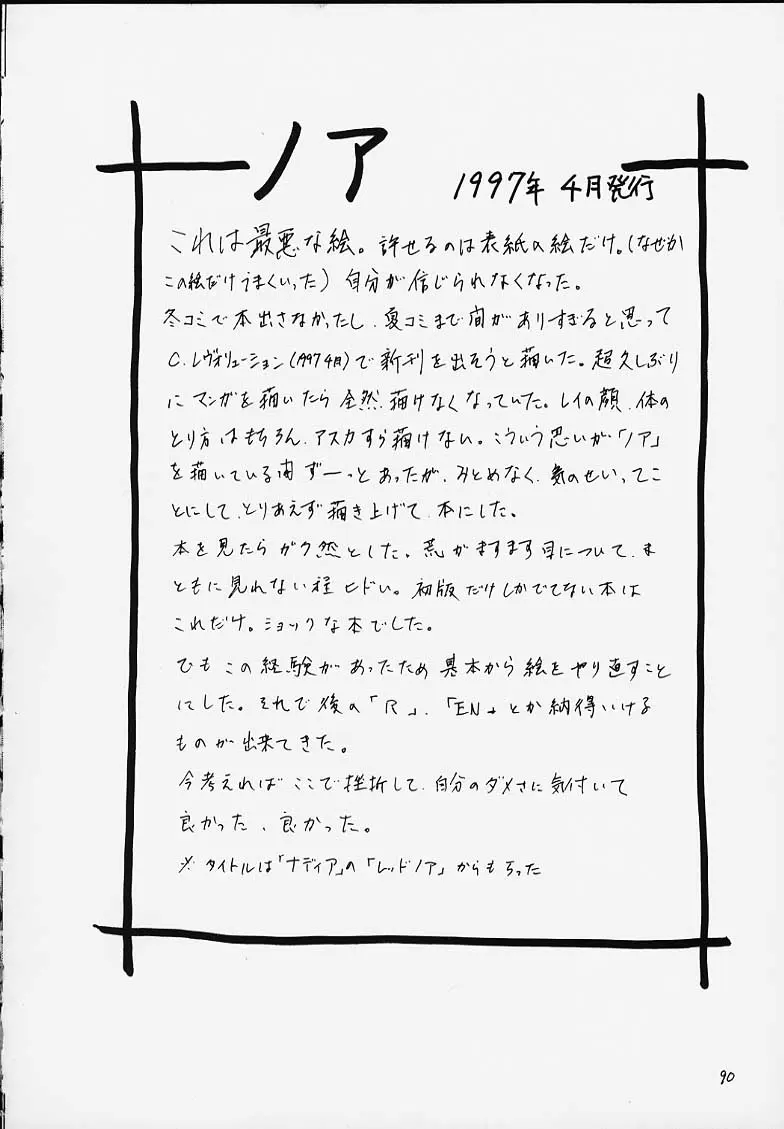 ノア
1997年 4月発行
これは最悪な絵。許せるのは表紙の絵だけ。(なぜか
この絵だけうまくいった) 自分が信じられなくなった。
冬コミで本出さなかったし、夏コミまで間がありすぎると思って
C.レヴォリューション(1997 4月)で新刊を出そうと描いた。超久しぶり
にマンガを描いたら全然、描けなくなっていた。レイの顔、体の
とり方はもちろん、アスカすら描けない。こういう思いが「ノア」
を描いている間ずーっとあったが、みとめなく、気のせいってこ
とにして、とりあえず描き上げて、本にした。
本を見たらガク然とした。荒がますます目について、ま
ともに見れない程ヒドい。初版だけしかでてない本は
これだけ。ショックな本でした。
でもこの経験があったため基本から絵をやり直すこと
にした。それで後の「R」、「EN」とか納得いける
ものが出来てきた。
今考えればここで挫折して、自分のダメさに気付いて
良かった、良かった。
※タイトルは「ナディア」の「レッドノア」からもらった
90